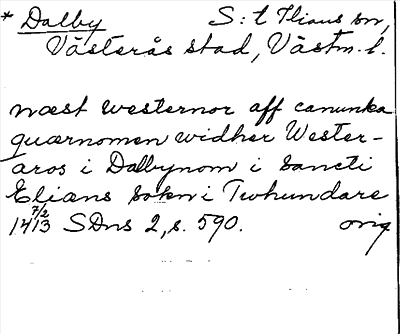 * Dalby S:t Ilians sn,
Västerås stad, Västm. l.
næst westernor aff canunka
quærnomen widher Wester-
aros i Dalbynom i sancti
Elians sokn i Twhundare
14 7/2 13 SDns 2, s. 590. orig